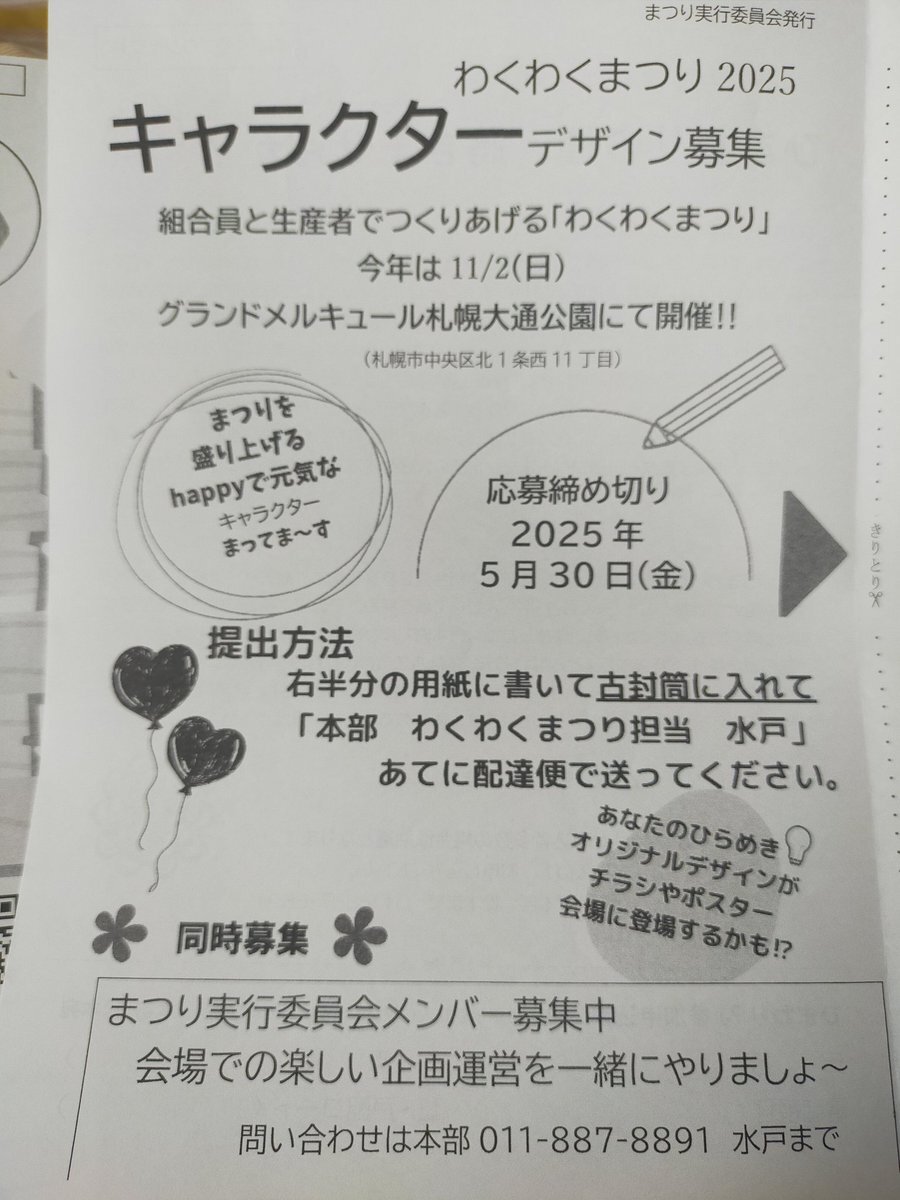 まつり実行委員会発行
わくわくまつり 2025
キャラクターデザイン募集
組合員と生産者でつくりあげる「わくわくまつり」
今年は 11/2(日)
グランドメルキュール札幌大通公園にて開催!!
(札幌市中央区北1条西11丁目)
まつりを
盛り上げる
happyで元気な
キャラクター
まってま～す
応募締め切り
2025年
5月30日(金)
きりとり
提出方法
右半分の用紙に書いて古封筒に入れて
「本部 わくわくまつり担当 水戸」
あてに配達便で送ってください。
あなたのひらめき
オリジナルデザインが
チラシやポスター
会場に登場するかも!?
同時募集
まつり実行委員会メンバー募集中
会場での楽しい企画運営を一緒にやりましょ～
問い合わせは本部 011-887-8891 水戸まで